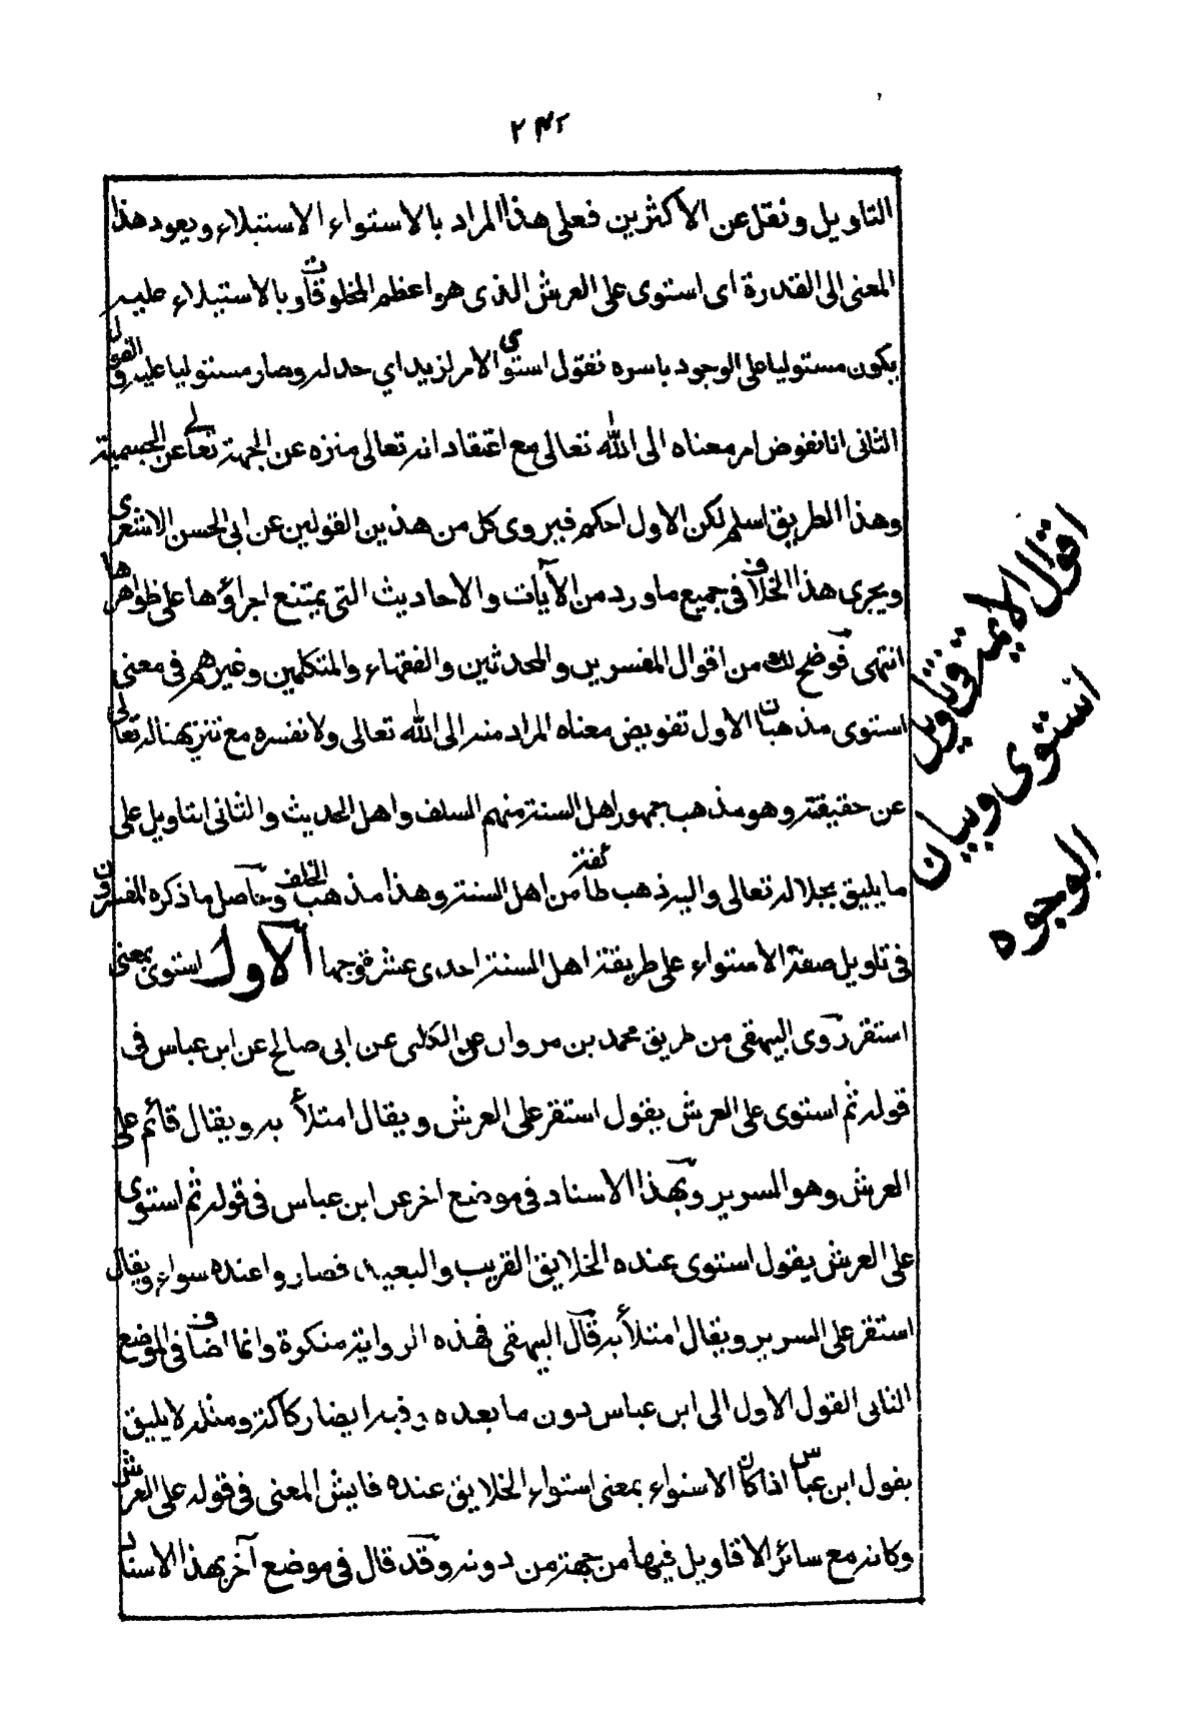 ٢٤٢
التاويل ونقل عن الأكثرين فعلى هذا المراد بالاستواء الاستيلاء ويعود هذا
المعنى الى القدرة اى استوى على العرش الذى هو اعظم المخلوقات وبالاستيلاء عليه
يكون مستوليا على الوجود باسره نقول استوى الامر لزيد اي حد له وصار مستوليا عليه والقول
الثانى انا نفوض امر معناه الى الله تعالى مع اعتقاد انه تعالى منزه عن الجهة تعالى عن الجسمية
وهذا الطريق اسلم لكن الاول احكم فيروى كل من هذين القولين عن ابى الحسن الاشعرى
ويجرى هذا الخلاف فى جميع ما ورد من الآيات والاحاديث التى يمتنع اجراؤها على ظواهرها
انتهى فوضح لك من اقوال المفسرين والمحدثين والفقهاء والمتكلمين وغيرهم فى معنى
استوى مذهبان الاول تفويض معناه المراد منه الى الله تعالى ولا نفسره مع تنزيهنا له تعالى
عن حقيقته وهو مذهب جمهور اهل السنة منهم السلف واهل الحديث والثانى انتاويل على
ما يليق بجلاله تعالى واليه ذهب طائفة من اهل السنة وهذا مذهب الخلف وحاصل ما ذكره المفسرون
فى تاويل صفة الاستواء على طريقة اهل السنة احدى عشرة وجها الاول استوى بمعنى
استقر روى البيهقى من طريق محمد بن مروان عن الكلبى عن ابى صالح عن ابن عباس فى
قوله ثم استوى على العرش يقول استقر على العرش ويقال امتلأ به ويقال قائم على
العرش وهو السرير وبهذا الاسناد فى موضع اخر عن ابن عباس فى قوله ثم استوى
على العرش يقول استوى عنده الخلايق القريب والبعيد فصاروا عنده سواء ويقال
استقر على السرير ويقال امتلأ به قال البيهقى فهذه الرواية منكرة وانما اضاف فى الموضع
الثانى القول الاول الى ابن عباس دون ما بعده وفيه ايضا ركاكة ومثله لا يليق
بقول ابن عباس اذا كان الاستواء بمعنى استواء الخلايق عنده فايش المعنى فى قوله على العرش
وكانه مع سائر الاقاويل فيها من جهة من دونه وقد قال فى موضع آخر بهذا الاسناد
اقوال الايمة وتاويل
استوى وبيان
الوجوه